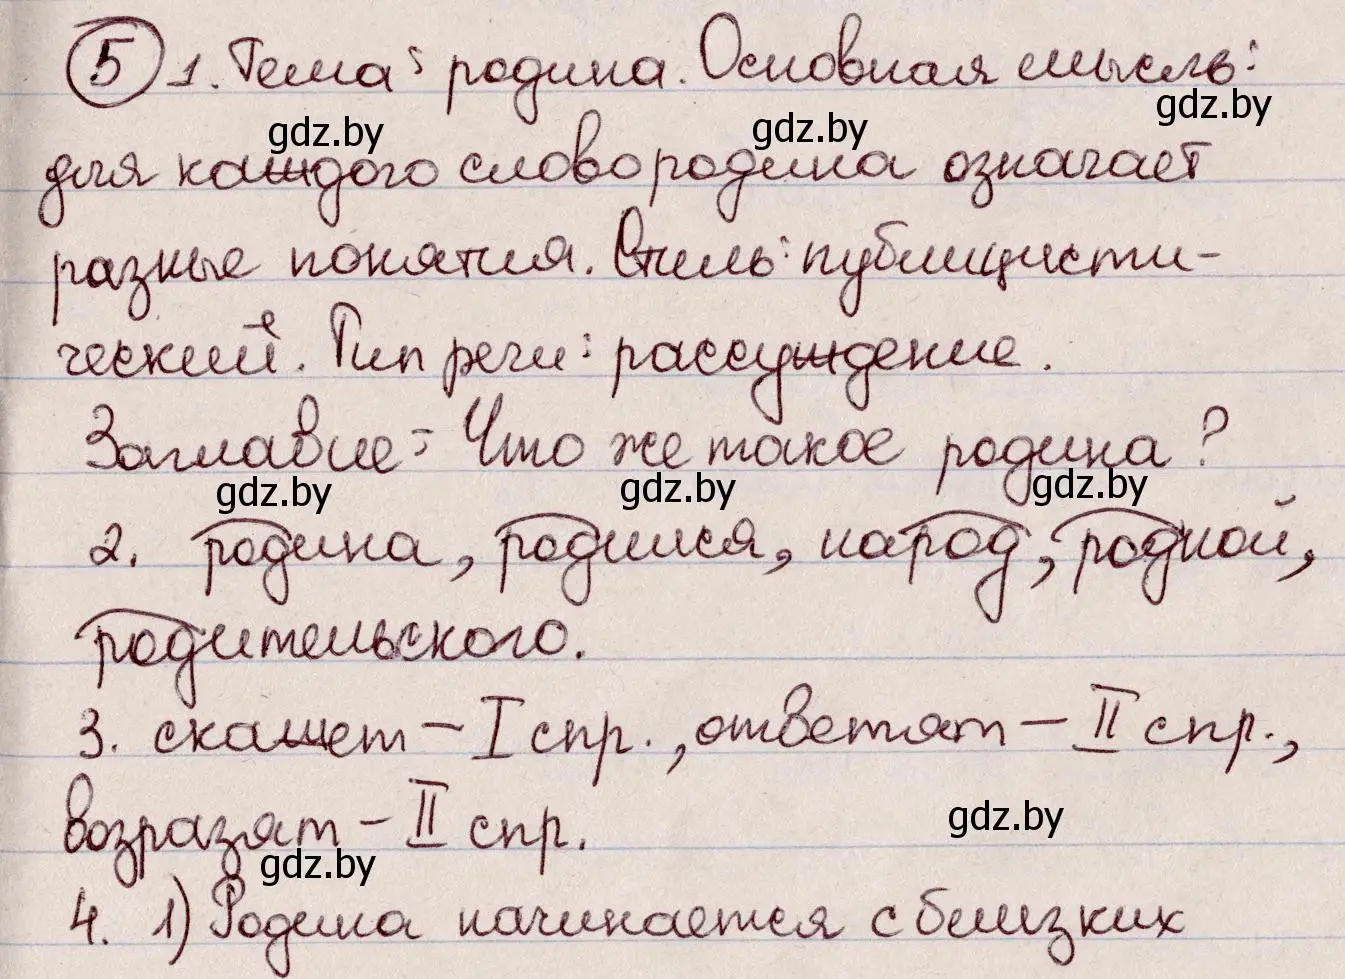 5 1. Тема: родина. Основная мысль:
для каждого слово родина означает
разные понятия. Стиль: публицисти-
ческий. Тип речи: рассуждение.
Заглавие: Что же такое родина?
2. родина, родился, народ, родной,
родительского.
3. скажет – I спр., ответят – II спр.,
возразят – II спр.
4. 1) Родина начинается с близких
gdz.by
gdz.by
gdz.by
gdz.by
gdz.by
gdz.by
gdz.by
gdz.by